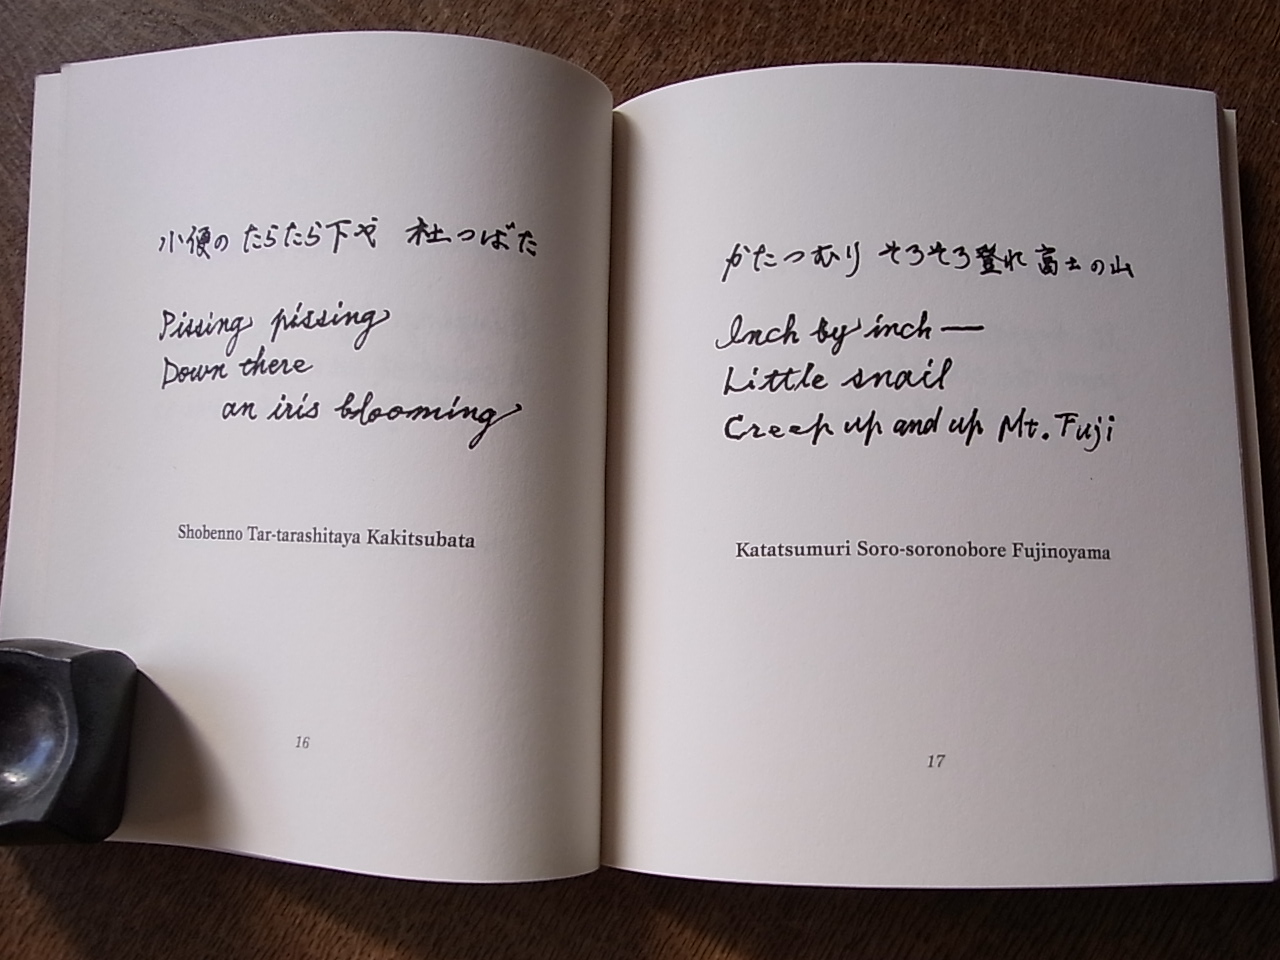 小便の たらたら下や 杜つばた
Pissing pissing
Down there
an iris blooming
Shobenno Tar-tarashitaya Kakitsubata
16
かたつむり そろそろ登れ 富士の山
Inch by inch —
Little snail
Creep up and up Mt. Fuji
Katatsumuri Soro-soronobore Fujinoyama
17